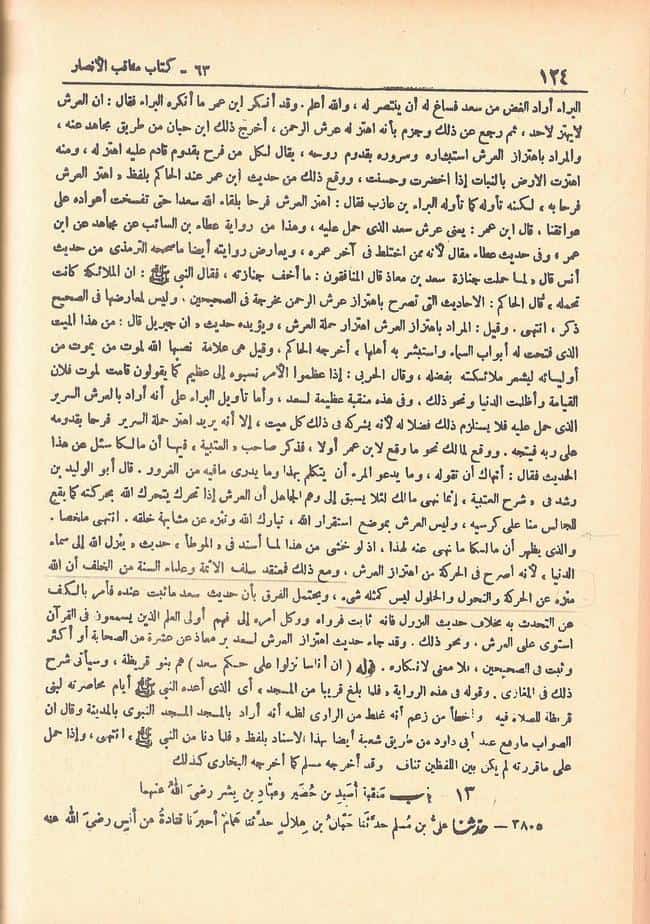 ١٢٤
٦٣ - كتاب مناقب الأنصار
البراء أراد الغض من سعد فساغ له أن ينتصر له ، والله أعلم . وقد أنكر ابن عمر ما أنكره البراء فقال : ان العرش
لايهتز لاحد ، ثم رجع عن ذلك وجزم بأنه اهتز له عرش الرحمن ، أخرج ذلك ابن حبان من طريق مجاهد عنه ،
والمراد باهتزاز العرش استبشاره وسروره بقدوم روحه ، يقال لكل من فرح بقدوم قادم عليه اهتز له ، ومنه
اهتزت الارض بالنبات إذا اخضرت وحسنت ، ووقع ذلك من حديث ابن عمر عند الحاكم بلفظ « اهتز العرش
فرحا به » لكنه تأوله كما تأوله البراء بن عازب فقال : اهتز العرش فرحا بلقاء الله سعدا حتى تفسخت أعواده على
عواتقنا ، قال ابن عمر : يعنى عرش سعد الذى حمل عليه ، وهذا من رواية عطاء بن السائب عن مجاهد عن ابن
عمر ، وفى حديث عطاء مقال لأنه ممن اختلط فى آخر عمره ، ويعارض روايته أيضا ماصححه الترمذى من حديث
أنس قال « لما حملت جنازة سعد بن معاذ قال المنافقون : ما أخف جنازته ، فقال النبي ﷺ : ان الملائكة كانت
تحمله » قال الحاكم : الاحاديث التى تصرح باهتزاز عرش الرحمن مخرجة فى الصحيحين ، وليس لمعارضها فى الصحيح
ذكر ، انتهى . وقيل : المراد باهتزاز العرش اهتزاز حملة العرش ، ويؤيده حديث « ان جبريل قال : من هذا الميت
الذى فتحت له أبواب السماء واستبشر به أهلها » أخرجه الحاكم ، وقيل هى علامة نصبها الله لموت من يموت من
أوليائه ليشعر ملائكته بفضله ، وقال الحربى : إذا عظموا الأمر نسبوه إلى عظيم كما يقولون قامت لموت فلان
القيامة وأظلمت الدنيا ونحو ذلك ، وفى هذه منقبة عظيمة لسعد ، وأما تأويل البراء على أنه أراد بالعرش السرير
الذى حمل عليه فلا يستلزم ذلك فضلا له لأنه يشركه فى ذلك كل ميت ، إلا أنه يريد اهتز حملة السرير فرحا بقدومه
على ربه فيتجه . ووقع لمالك نحو ما وقع لابن عمر أولا ، فذكر صاحب « العتبية » فيها أن مالكا سئل عن هذا
الحديث فقال : أنهاك أن تقوله ، وما يدعو المرء أن يتكلم بهذا وما يدرى مافيه من الغرور . قال أبو الوليد بن
رشد فى « شرح العتبية » إنما نهى مالك لئلا يسبق إلى وهم الجاهل أن العرش إذا تحرك يتحرك الله بحركته كما يقع
للجالس منا على كرسيه ، وليس العرش بموضع استقرار الله ، تبارك الله وتنزه عن مشابهة خلقه . انتهى ملخصا .
والذى يظهر أن مالكا ما نهى عنه لهذا ، اذ لو خشى من هذا لما أسند فى « الموطأ » حديث « ينزل الله إلى سماء
الدنيا » لأنه أصرح فى الحركة من اهتزاز العرش ، ومع ذلك فمعتقد سلف الائمة وعلماء السنة من الخلف أن الله
منزه عن الحركة والتحول والحلول ليس كمثله شىء ، ويحتمل الفرق بأن حديث سعد ماثبت عنده فأمر بالكف
عن التحدث به بخلاف حديث النزول فانه ثابت فرواه ووكل أمره إلى فهم أولى العلم الذين يسمعون فى القرآن
استوى على العرش ، ونحو ذلك . وقد جاء حديث اهتزاز العرش لسعد بن معاذ عن عشرة من الصحابة أو أكثر
وثبت فى الصحيحين ، فلا معنى لانكاره . قوله ( ان أناسا نزلوا على حكم سعد ) هم بنو قريظة ، وسيأتى شرح
ذلك فى المغازى . وقوله فى هذه الرواية « فلما بلغ قريبا من المسجد » أى الذى أعده النبي ﷺ أيام محاصرته لبنى
قريظة للصلاة فيه وأخطأ من زعم أنه غلط من الراوى لظنه أنه أراد بالمسجد المسجد النبوى بالمدينة وقال ان
الصواب ماوقع عند أبى داود من طريق شعبة أيضا بهذا الاسناد بلفظ « فلما دنا من النبي ﷺ » انتهى ، وإذا حمل
على ماقررته لم يكن بين اللفظين تناف وقد أخرجه مسلم كما أخرجه البخارى كذلك
١٣ باب منقبة أسيد بن حضير وعباد بن بشر رضىَ اللهُ عنهما
٣٨٠٥ – حدثنا علىُّ بن مُسلم حدَّثَنا حَبّانُ بن هِلالٍ حدَّثنا همامٌ أخبرَنا قتادةُ عن أنسٍ رضىَ الله عنه